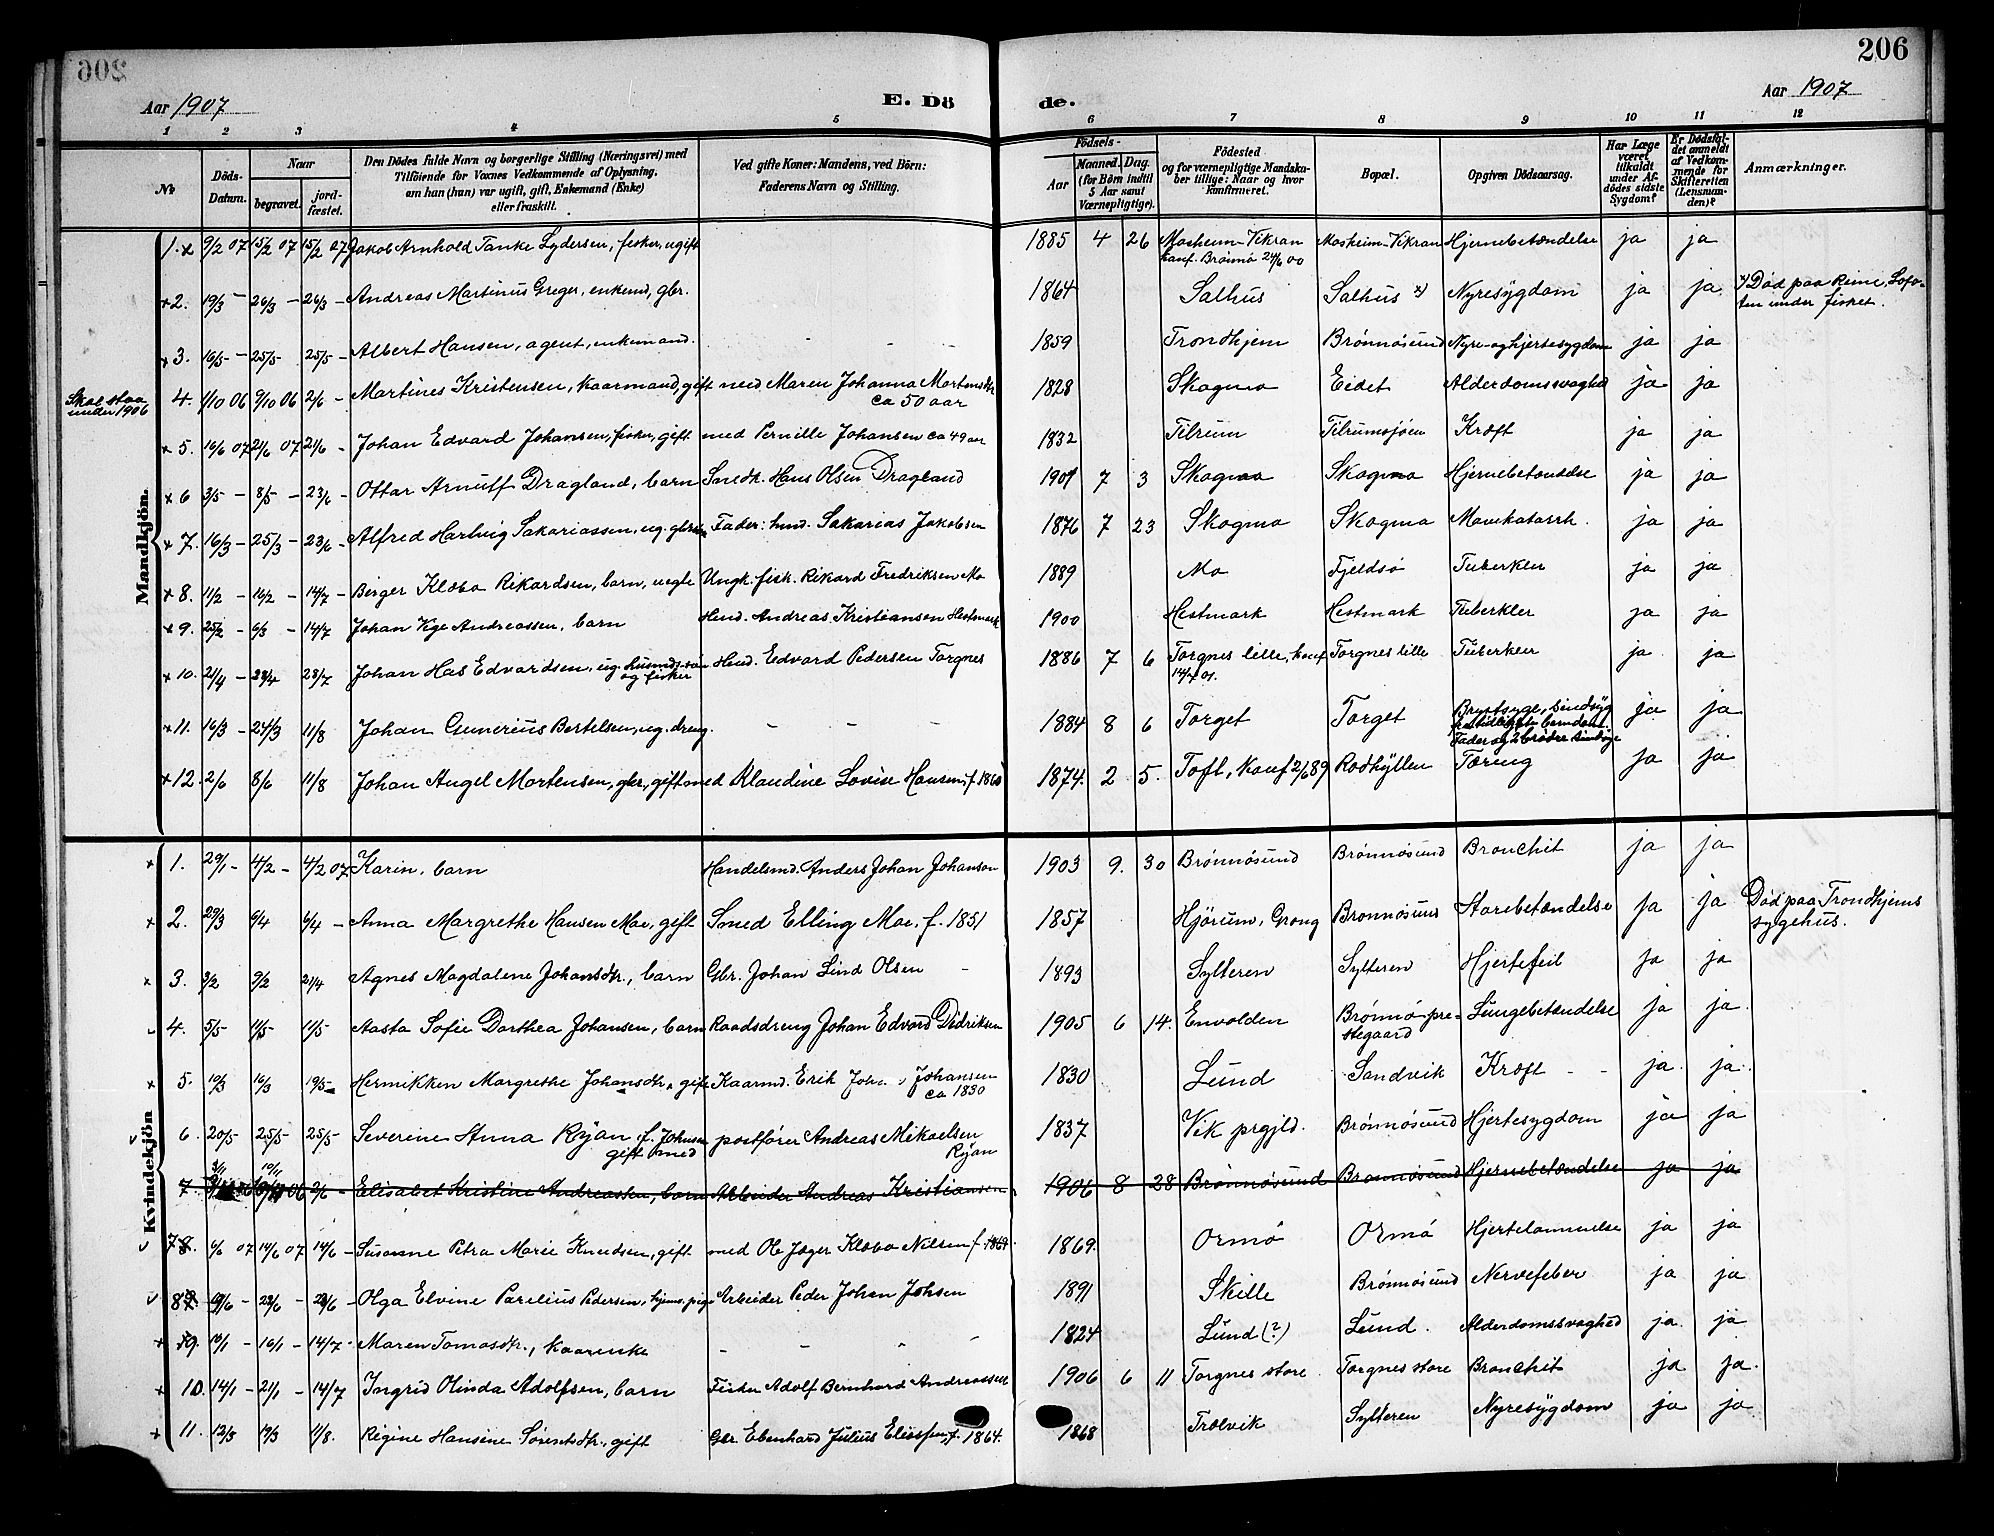 206
Aar 1907
E. Dö de.
Aar 1907
1 2 3 4 5 6 7 8 9 10 11 12
№ Döds-Datum. Naar begravet. jord-fæstet. Den Dödes fulde Navn og borgerlige Stilling (Næringsvei) med Tilföiende for Voxnes Vedkommende af Oplysning, om han (hun) var ugift, gift, Enkemand (Enke) eller fraskilt. Ved gifte Koner: Mandens, ved Börn: Faderens Navn og Stilling. Födsels- Aar Maaned. Dag. (for Börn indtil 5 Aar samt Værnepligtige). Födested og for værnepligtige Mandskaber tillige: Naar og hvor konfirmeret. Bopæl. Opgiven Dödsaarsag. Har Læge været tilkaldt under Afdödes sidste Sygdom? Er Dödsfaldet anmeldt af Vedkommende for Skifteretten (Lensmanden)? Anmærkninger.
Mandkjön.
1. x 9/2 07 15/2 07 15/2 07 Jakob Arnhold Tanke Lydersen, fisker, ugift 1885 4 26 Mosheim-Vikran konf. Brönnö 24/6 00 Mosheim-Vikran Hjernebetændelse ja ja
x 2. 19/3 - 26/3 - 26/3 - Andreas Martinus Greger, enkemd, gbr. 1864 Salhus Salhus x) Nyresygdom ja ja x) Död paa Reine, Lofoten under fisket.
x 3. 16/5 - 25/5 - 25/5 - Albert Hansen, agent, enkemand. - - - 1859 Trondhjem Brönnösund Nyre- og hjertesygdom ja ja
Skal staa under 1906 4. 1/10 06 9/10 06 2/6 - Martines Kristensen, kaarmand, gift med Maren Johanna Mortensdtr ca 50 aar 1828 Skogmo Eidet Alderdomssvaghed ja ja
x 5. 16/6 07 21/6 07 21/6 - Johan Edvard Johansen, fisker, gift med Pernille Johansen ca 49 aar 1832 Tilrum Tilrumsjöen Kræft ja ja
x 6 3/5 - 8/5 - 23/6 - Ottar Arnulf Dragland, barn Smedk. Hans Olsen Dragland 1901 7 3 Skogmo Skogmo Hjernebetændelse ja ja
x 7. 16/3 - 25/3 - 23/6 - Alfred Hartvig Sakariassen, ug. gbrsön Fader: hmd. Sakarias Jakobsen 1876 7 23 Skogmo Skogmo Mavekatarrh. ja ja
x 8. 11/2 - 16/2 - 14/7 - Birger Klæbo Rikardsen, barn, uegte Ungk. fisk. Rikard Fredriksen Mo 1889 Mo Fjeldsö Tuberkler ja ja
x 9. 25/2 - 6/3 - 14/7 Johan Vige Andreassen, barn Hmd. Andreas Kristiansen Hestmark 1900 Hestmark Hestmark Tuberkler ja ja
x 10. 21/4 - 28/4 23/7 Johan Has Edvardsen, ug. husmdsön og fisker Hmd. Edvard Pedersen Torgnes 1886 7 6 Torgnes lille, konf 14/7 01. Torgnes lille Tuberkler ja ja
x 11. 16/3 - 24/3 11/8 Johan Gunerius Bertelsen, ug. dreng. - - - 1884 8 6 Torget Torget Brystsyge, sindsyg Fader og 2 brödre sindsyge ja ja
x 12. 2/6 8/6 11/8 Johan Angel Mortensen, gbr., gift med Klaudine Lovise Hansen, f. 1865 1874. 2 5. Toft, konf 2/6 89 Rodhyllen Tæring ja ja
Kvindekjön
x 1. 29/1 - 4/2 - 4/2 07 Karin, barn Handelsmd. Anders Johan Johanson 1903 9. 30 Brönnösund Brönnösund Bronchit ja ja
x 2. 29/3 6/4 6/4 - Anna Margrethe Hansen Moe, gift Smed Elling Moe, f. 1851 1857 Hjörum, Grong Brönnösund Starebetændelse ja ja Död paa Trondhjems sygehus.
x 3. 3/2 9/2 21/4 Agnes Magdalene Johansdtr., barn Gbr. Johan Lind Olsen - 1893 Sylteren Sylteren Hjertefeil ja ja
4. 5/5 11/5 11/5 Aasta Sofie Dorthea Johansen, barn Raadsdreng Johan Edvard Didriksen 1905 6 14. Envolden Brönnö prestegaard Lungebetændelse ja ja.
x 5. 10/3 16/3 19/5 - Hennikken Margrethe Johansdtr, gift Kaarmd. Erik Joh. Johansen ca 1830 1830 Lund Sandvik Kræft - - ja. ja.
v 6. 20/5 25/5 25/5 Severine Anna Ryan f. Johnsen gift med postförer Andreas Mikaelsen Ryan 1837 Vik prgjld. Brönnösund Hjertesygdom ja ja
7 3/11 10/11 06 2/6 - Elisabet Kristine Andreassen, barn Arbeider Andreas Kristiansen 1906 8 28 Brönnösund Brönnösund Hjernebetændelse ja ja
v 78. 6/6 07 14/6 07 14/6 - Susanne Petra Marie Knudsen, gift med Ole Jæger Klæbo Nilsen f. 1864. 1869. Ormö Ormö Hjertelammelse ja ja
v 89. 9/6 - 23/6 - 23/6 - Olga Elvine Parelius Pedersen, hjemv. pige Arbeider Peder Johan Johsen 1891 Skille Brönnösund Nervefeber ja ja
+ 9. 10/1 - 16/1 - 14/7 - Maren Tomasdtr., kaarenke - - - - 1824 Lund (?) Lund. Alderdomssvaghed ja. ja
x 10. 14/1 - 21/1 - 14/7 Ingrid Olinda Adolfsen, barn Fisker Adolf Bernhard Andreassen 1906 6 11 Torgnes store. Torgnes store Bronchit ja ja.
x 11. 12/3 19/3 11/8. Regine Hansine Sörensdtr., gift Gbr Ebenhard Julius Eliassen, f. 1864. 1868 Trælvik Sylteren Nyresygdom ja ja